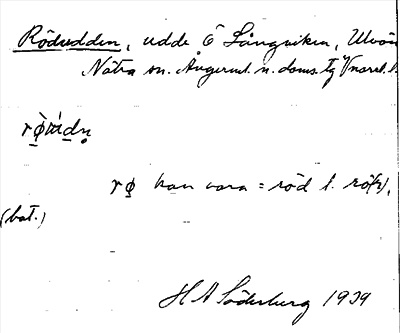 Rödudden, udde Ö Långviken, Ulvön
Nätra sn. Ångerml. n. doms. tg Vnorrl. l.
rø̀ùdn̥
rø kan vara = röd l. rö(r),
(bat.)
H A Söderberg 1939